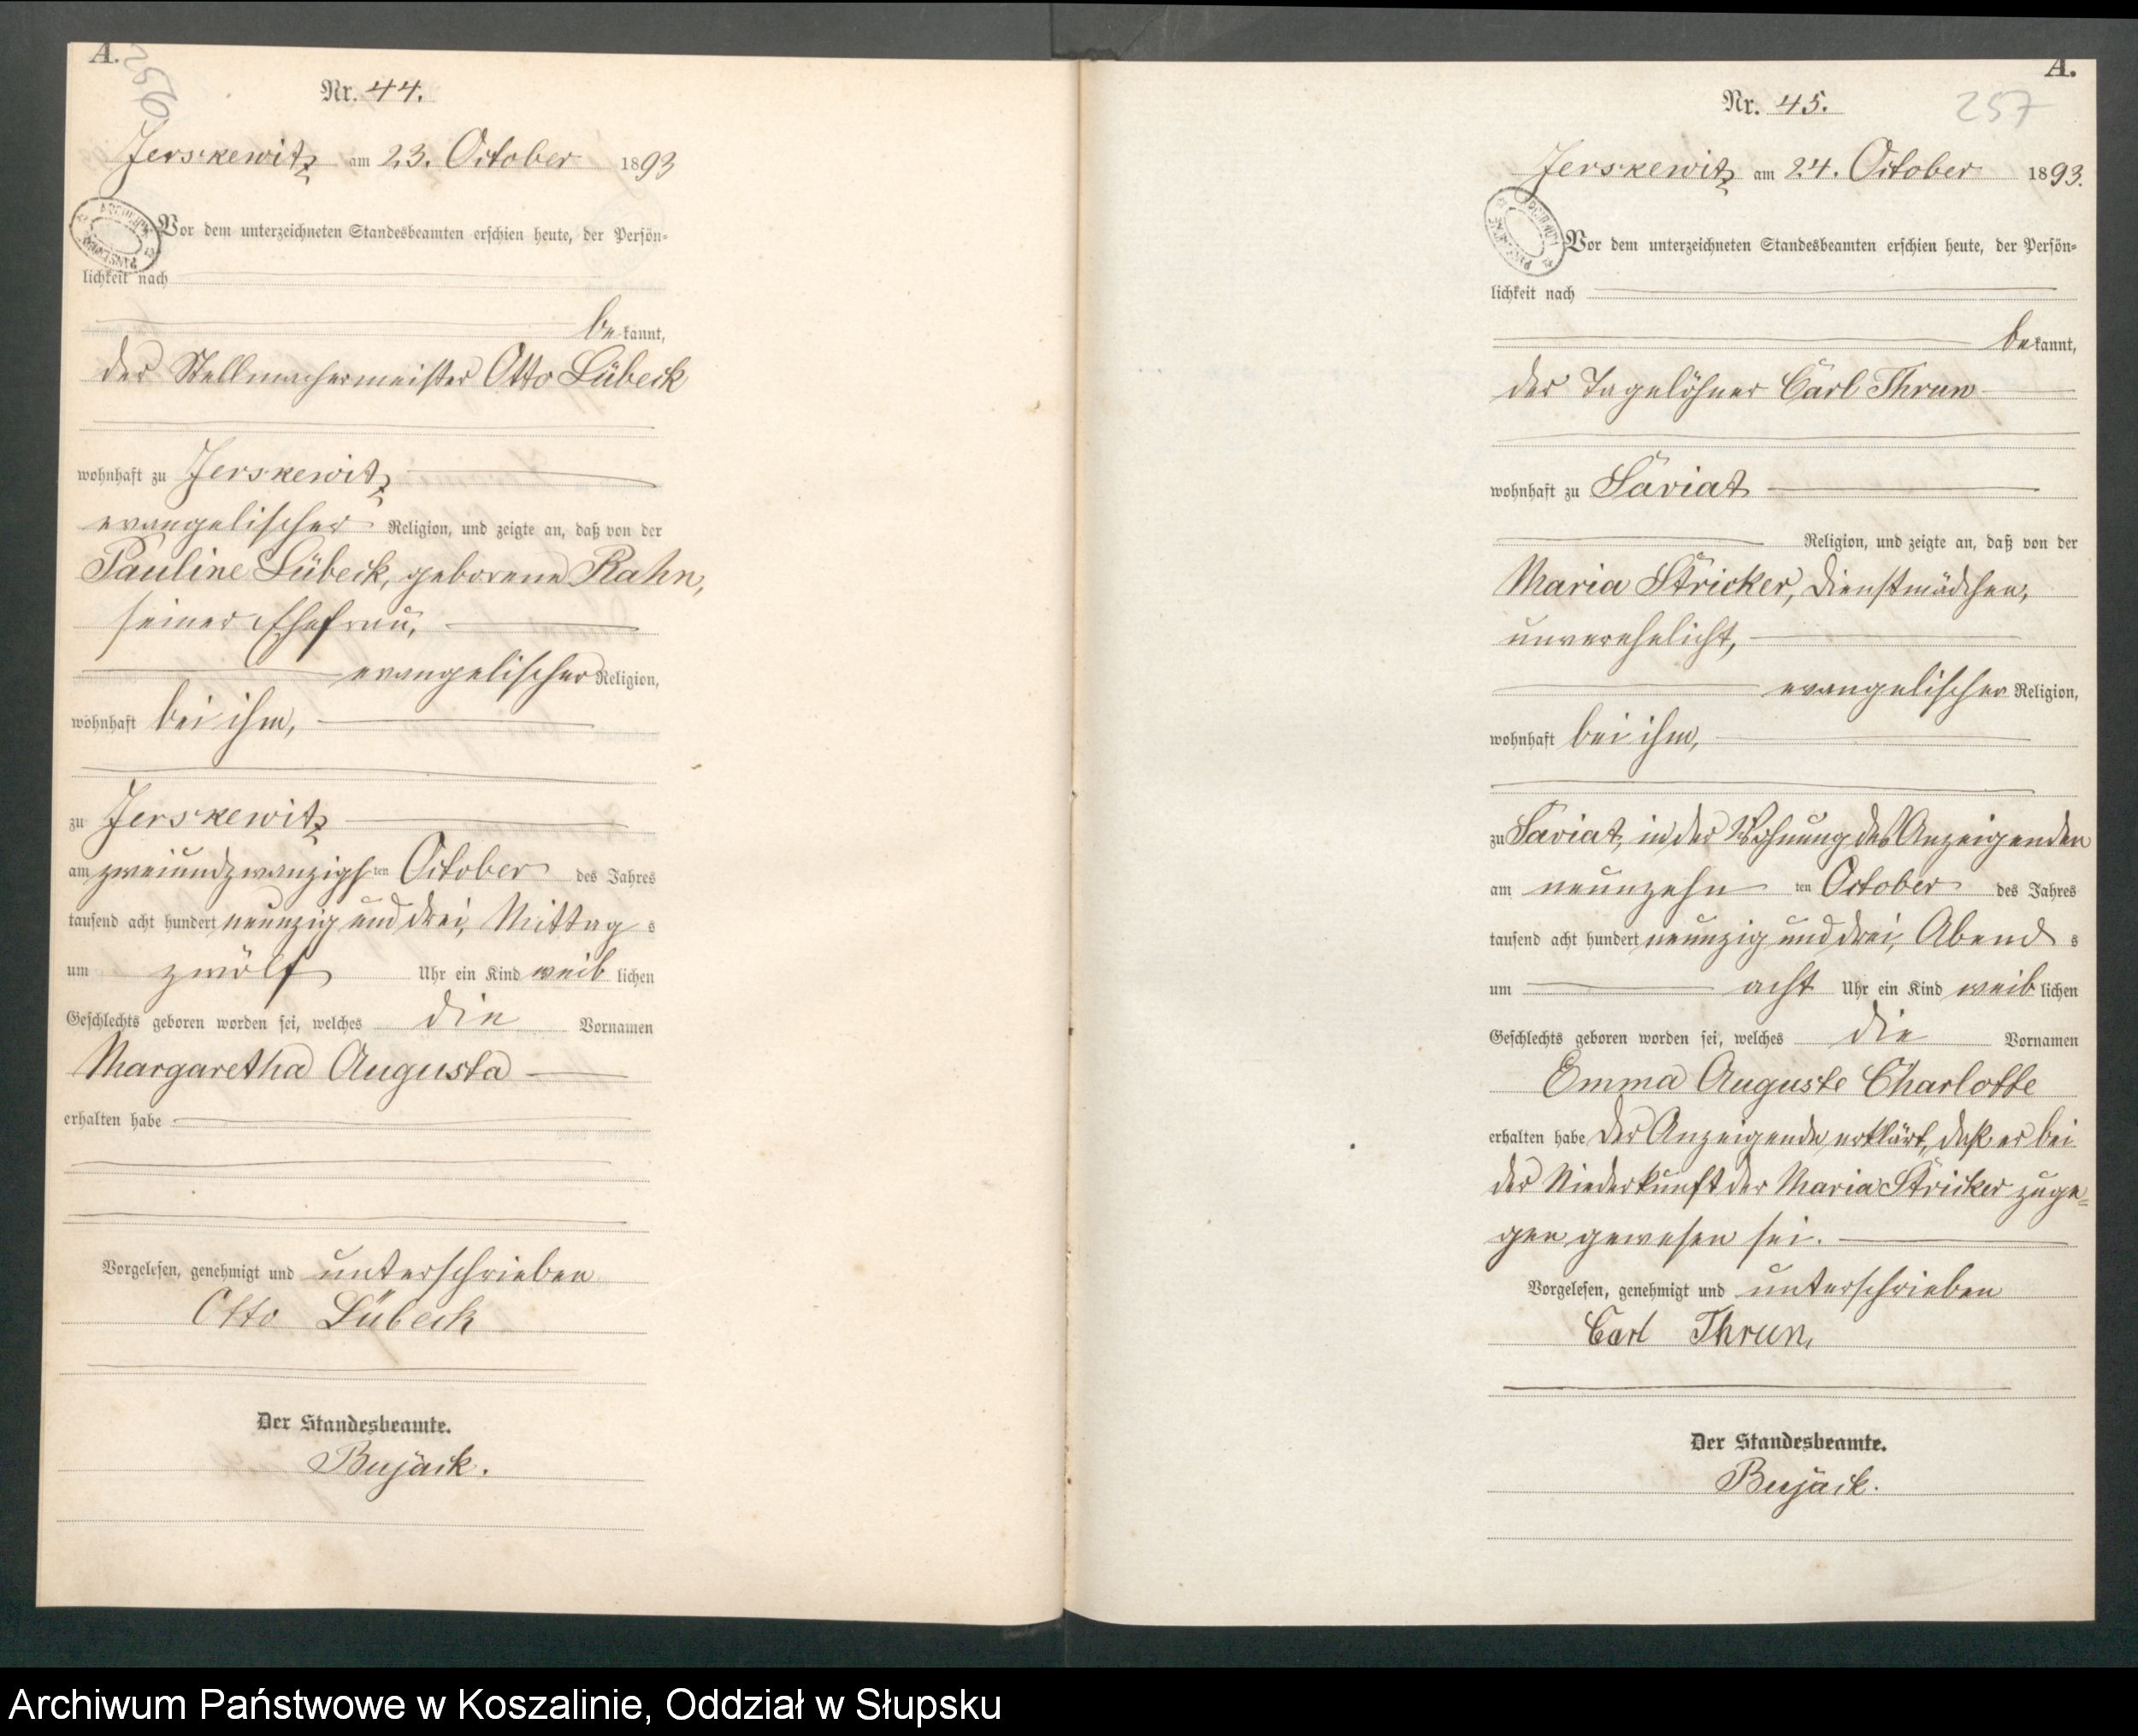 A.
256
Nr. 44.
Jerskewitz am 23. October 1893
Vor dem unterzeichneten Standesbeamten erschien heute, der Persön-
lichkeit nach
bekannt,
der Stellmachermeister Otto Lübeck
wohnhaft zu Jerskewitz
evangelischer Religion, und zeigte an, daß von der
Pauline Lübeck, geborene Rahn,
seiner Ehefrau,
evangelischer Religion,
wohnhaft bei ihm,
zu Jerskewitz
am zweiundzwanzigsten October des Jahres
tausend acht hundert neunzig und drei, Mittags
um zwölf Uhr ein Kind weiblichen
Geschlechts geboren worden sei, welches die Vornamen
Margaretha Augusta
erhalten habe
Vorgelesen, genehmigt und unterschrieben
Otto Lübeck
Der Standesbeamte.
Bujack.
A.
257
Nr. 45.
Jerskewitz am 24. October 1893.
Vor dem unterzeichneten Standesbeamten erschien heute, der Persön-
lichkeit nach
bekannt,
der Tagelöhner Carl Thrun
wohnhaft zu Saviat
Religion, und zeigte an, daß von der
Maria Stricker, Dienstmädchen,
unverehelicht,
evangelischer Religion,
wohnhaft bei ihm,
zu Saviat, in der Wohnung des Anzeigenden
am neunzehnten October des Jahres
tausend acht hundert neunzig und drei, Abends
um acht Uhr ein Kind weiblichen
Geschlechts geboren worden sei, welches die Vornamen
Emma Auguste Charlotte
erhalten habe Der Anzeigende erklärt, daß er bei
der Niederkunft der Maria Stricker zuge=
gen gewesen sei.
Vorgelesen, genehmigt und unterschrieben
Carl Thrun,
Der Standesbeamte.
Bujack.
Archiwum Państwowe w Koszalinie, Oddział w Słupsku